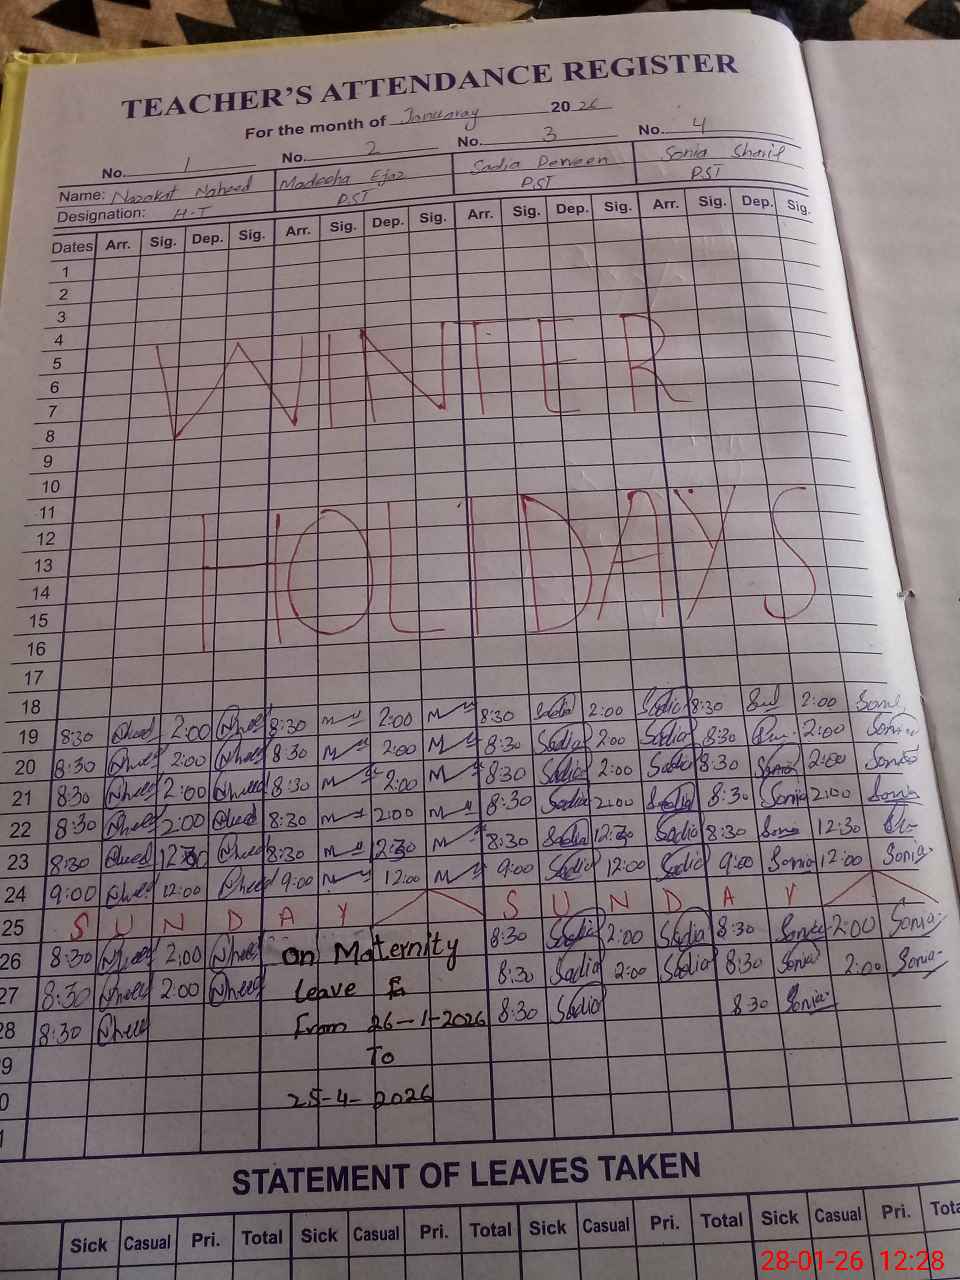 TEACHER'S ATTENDANCE REGISTER
For the month of Januaray 2026
No. 1 No. 2 No. 3 No. 4
Name: Nazakat Naheed Madeeha Ejaz Sadia Perveen Sonia Sharif
Designation: H-T PST PST PST
Dates Arr. Sig. Dep. Sig. Arr. Sig. Dep. Sig. Arr. Sig. Dep. Sig. Arr. Sig. Dep. Sig.
1
2
3
4
5
6
7
8
9
10
11
12
13
14
15
16
17
WINTER
HOLIDAYS
18
19 8:30 2:00 8:30 2:00 8:30 Sadia 2:00 Sadia 8:30 2:00
20 8:30 2:00 8:30 2:00 8:30 Sadia 2:00 Sadia 8:30 2:00 Sonia
21 8:30 2:00 8:30 2:00 8:30 Sadia 2:00 Sadia 8:30 Sonia 2:00 Sonia
22 8:30 2:00 8:30 2:00 8:30 Sadia 2:00 Sadia 8:30 Sonia 2:00 Sonia
23 8:30 12:30 8:30 12:30 8:30 Sadia 12:30 Sadia 8:30 Sonia 12:30
24 9:00 12:00 9:00 12:00 9:00 Sadia 12:00 Sadia 9:00 Sonia 12:00 Sonia
25 SUNDAY SUNDAY
26 8:30 2:00 On Maternity 8:30 Sadia 2:00 Sadia 8:30 Sonia 2:00 Sonia
27 8:30 2:00 leave 8:30 Sadia 2:00 Sadia 8:30 Sonia 2:00 Sonia
28 8:30 From 26-1-2026 8:30 Sadia 8:30 Sonia
9 To
0 25-4-2026
1
STATEMENT OF LEAVES TAKEN
Sick Casual Pri. Total Sick Casual Pri. Total Sick Casual Pri. Total Sick Casual Pri. Tota
28-01-26 12:28